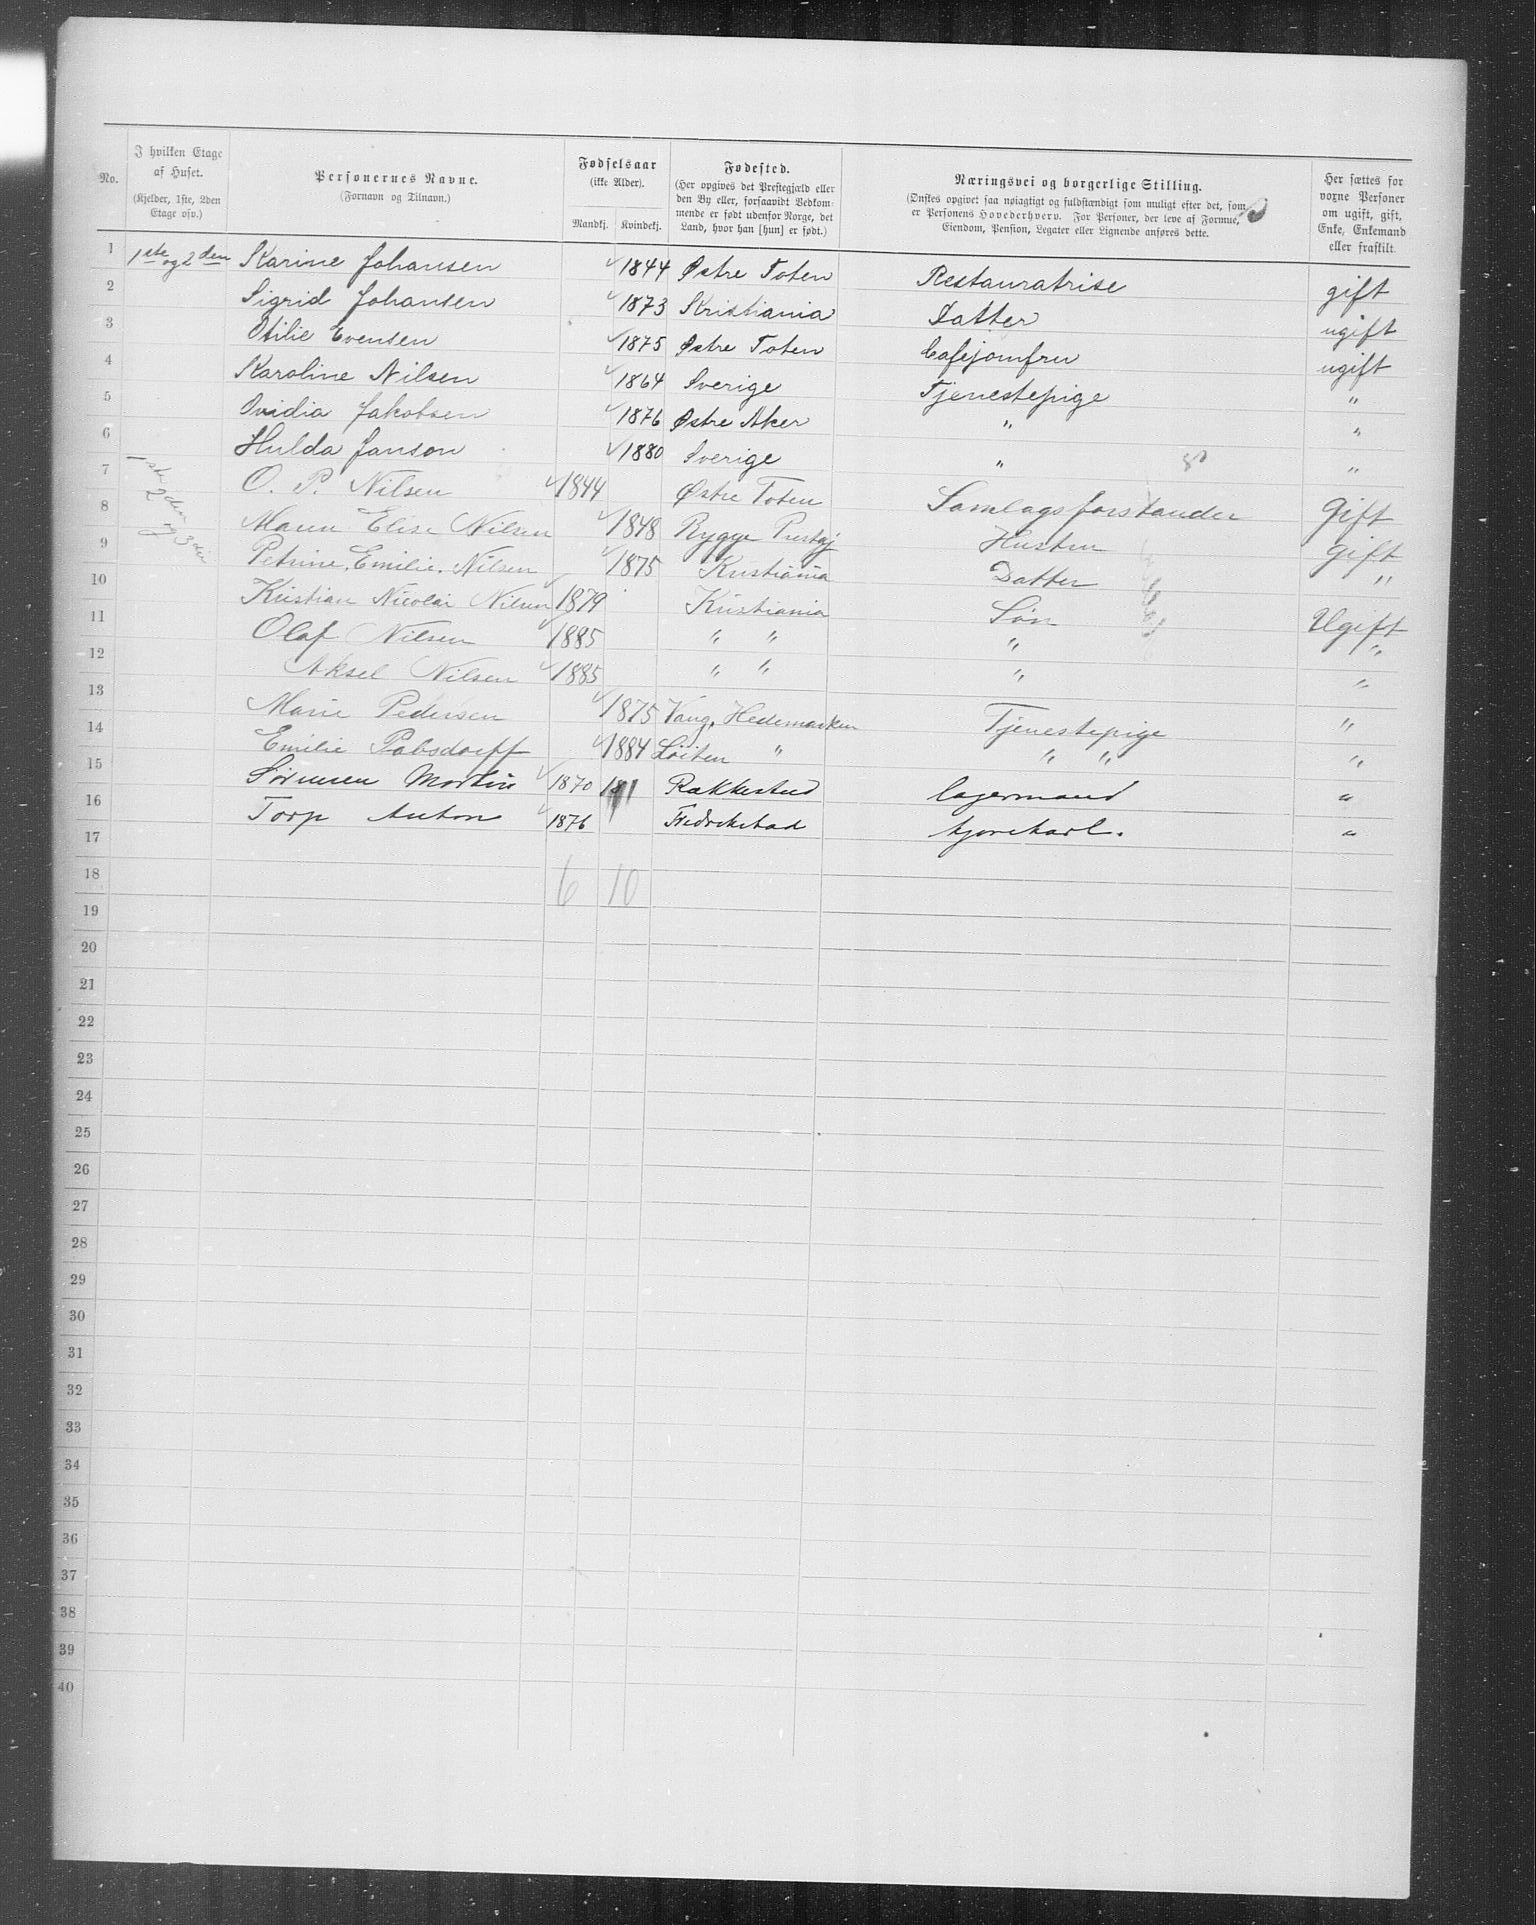 No. | I hvilken Etage af Huset. (Kjelder, 1ste, 2den Etage osv.) | Personernes Navne. (Fornavn og Tilnavn.) | Fødselsaar (ikke Alder). Mandkj. Kvindekj. | Fødested. (Her opgives det Prestegjæld eller den By eller, forsaavidt Vedkommende er født udenfor Norge, det Land, hvor han [hun] er født.) | Næringsvei og borgerlige Stilling. (Ønskes opgivet saa nøiagtigt og fuldstændigt som muligt efter det, som er Personens Hovederhverv. For Personer, der leve af Formue, Eiendom, Pension, Legater eller Lignende anføres dette. | Her sættes for voxne Personer om ugift, gift, Enke, Enkemand eller fraskilt.
1 1ste og 2den Karine Johansen 1844 Østre Toten Restauratrise gift
2 Sigrid Johansen 1873 Kristiania Datter ugift
3 Otilie Evensen 1875 Østre Toten Cafejomfru ugift
4 Karoline Nilsen 1864 Sverige Tjenestepige "
5 Ovidia Jakobsen 1876 Østre Aker " "
6 Hulda Janson 1880 Sverige " "
7 1ste 2den og 3die O. P. Nilsen 1844 Østre Toten Samlagsforstander Gift
8 Maren Elise Nilsen 1848 Rygge Prestgj Hustru gift
9 Petrine Emilie Nilsen 1875 Kristiania Datter "
10 Kristian Nicolai Nilsen 1879 Kristiania Søn Ugift
11 Olaf Nilsen 1885 " " " "
12 Aksel Nilsen 1885 " " " "
13 Marie Pedersen 1875 Vang, Hedemarken Tjenestepige "
14 Emilie Pabsdorff 1884 Löiten " " " "
15 Sörensen Martin 1870 Rakkestad lagermand "
16 Torp Anton 1876 Fredrikstad kjørekarl. "
17
18 6 10
19
20
21
22
23
24
25
26
27
28
29
30
31
32
33
34
35
36
37
38
39
40